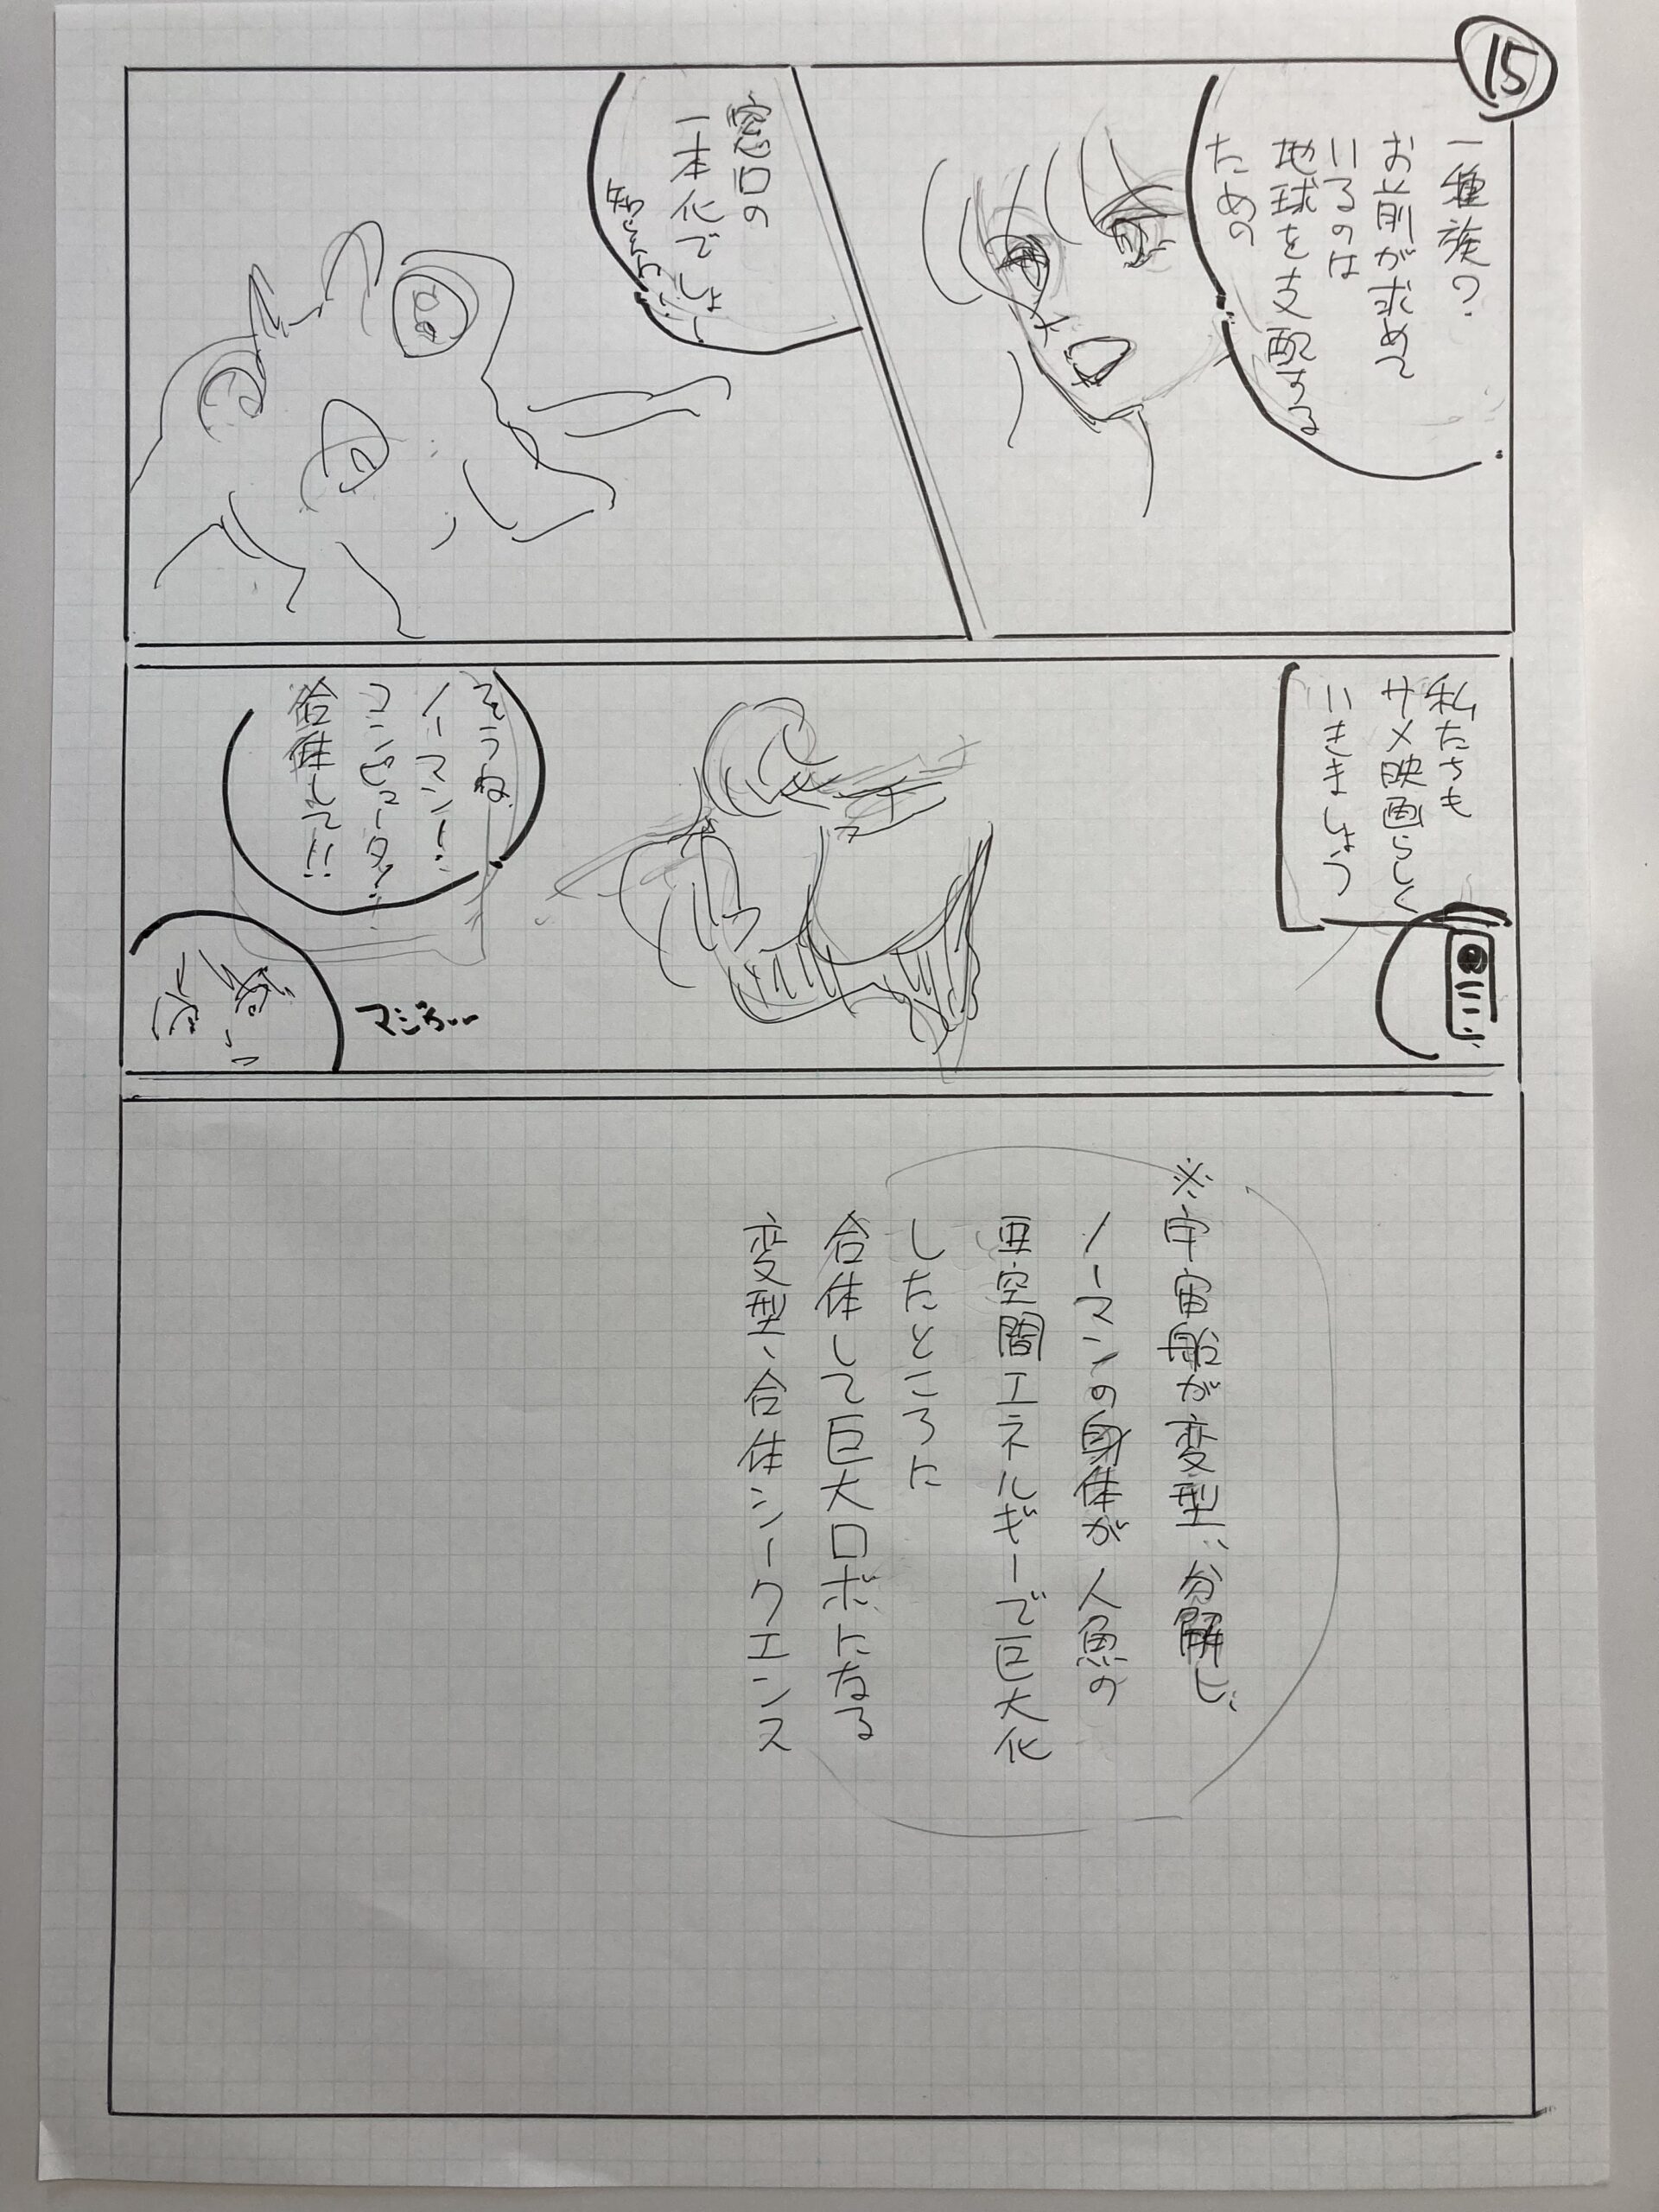 15
一種族?
お前が求めて
いるのは
地球を支配する
ための
窓口の
一本化でしょ
私たちも
サメ映画らしく
いきましょう
そうね
ノーマン!
コンピュータ!
合体して!!
マジか…
※宇宙船が変型、分解し、
ノーマンの身体が人魚の
亜空間エネルギーで巨大化
したところに
合体して巨大ロボになる
変型、合体シークエンス